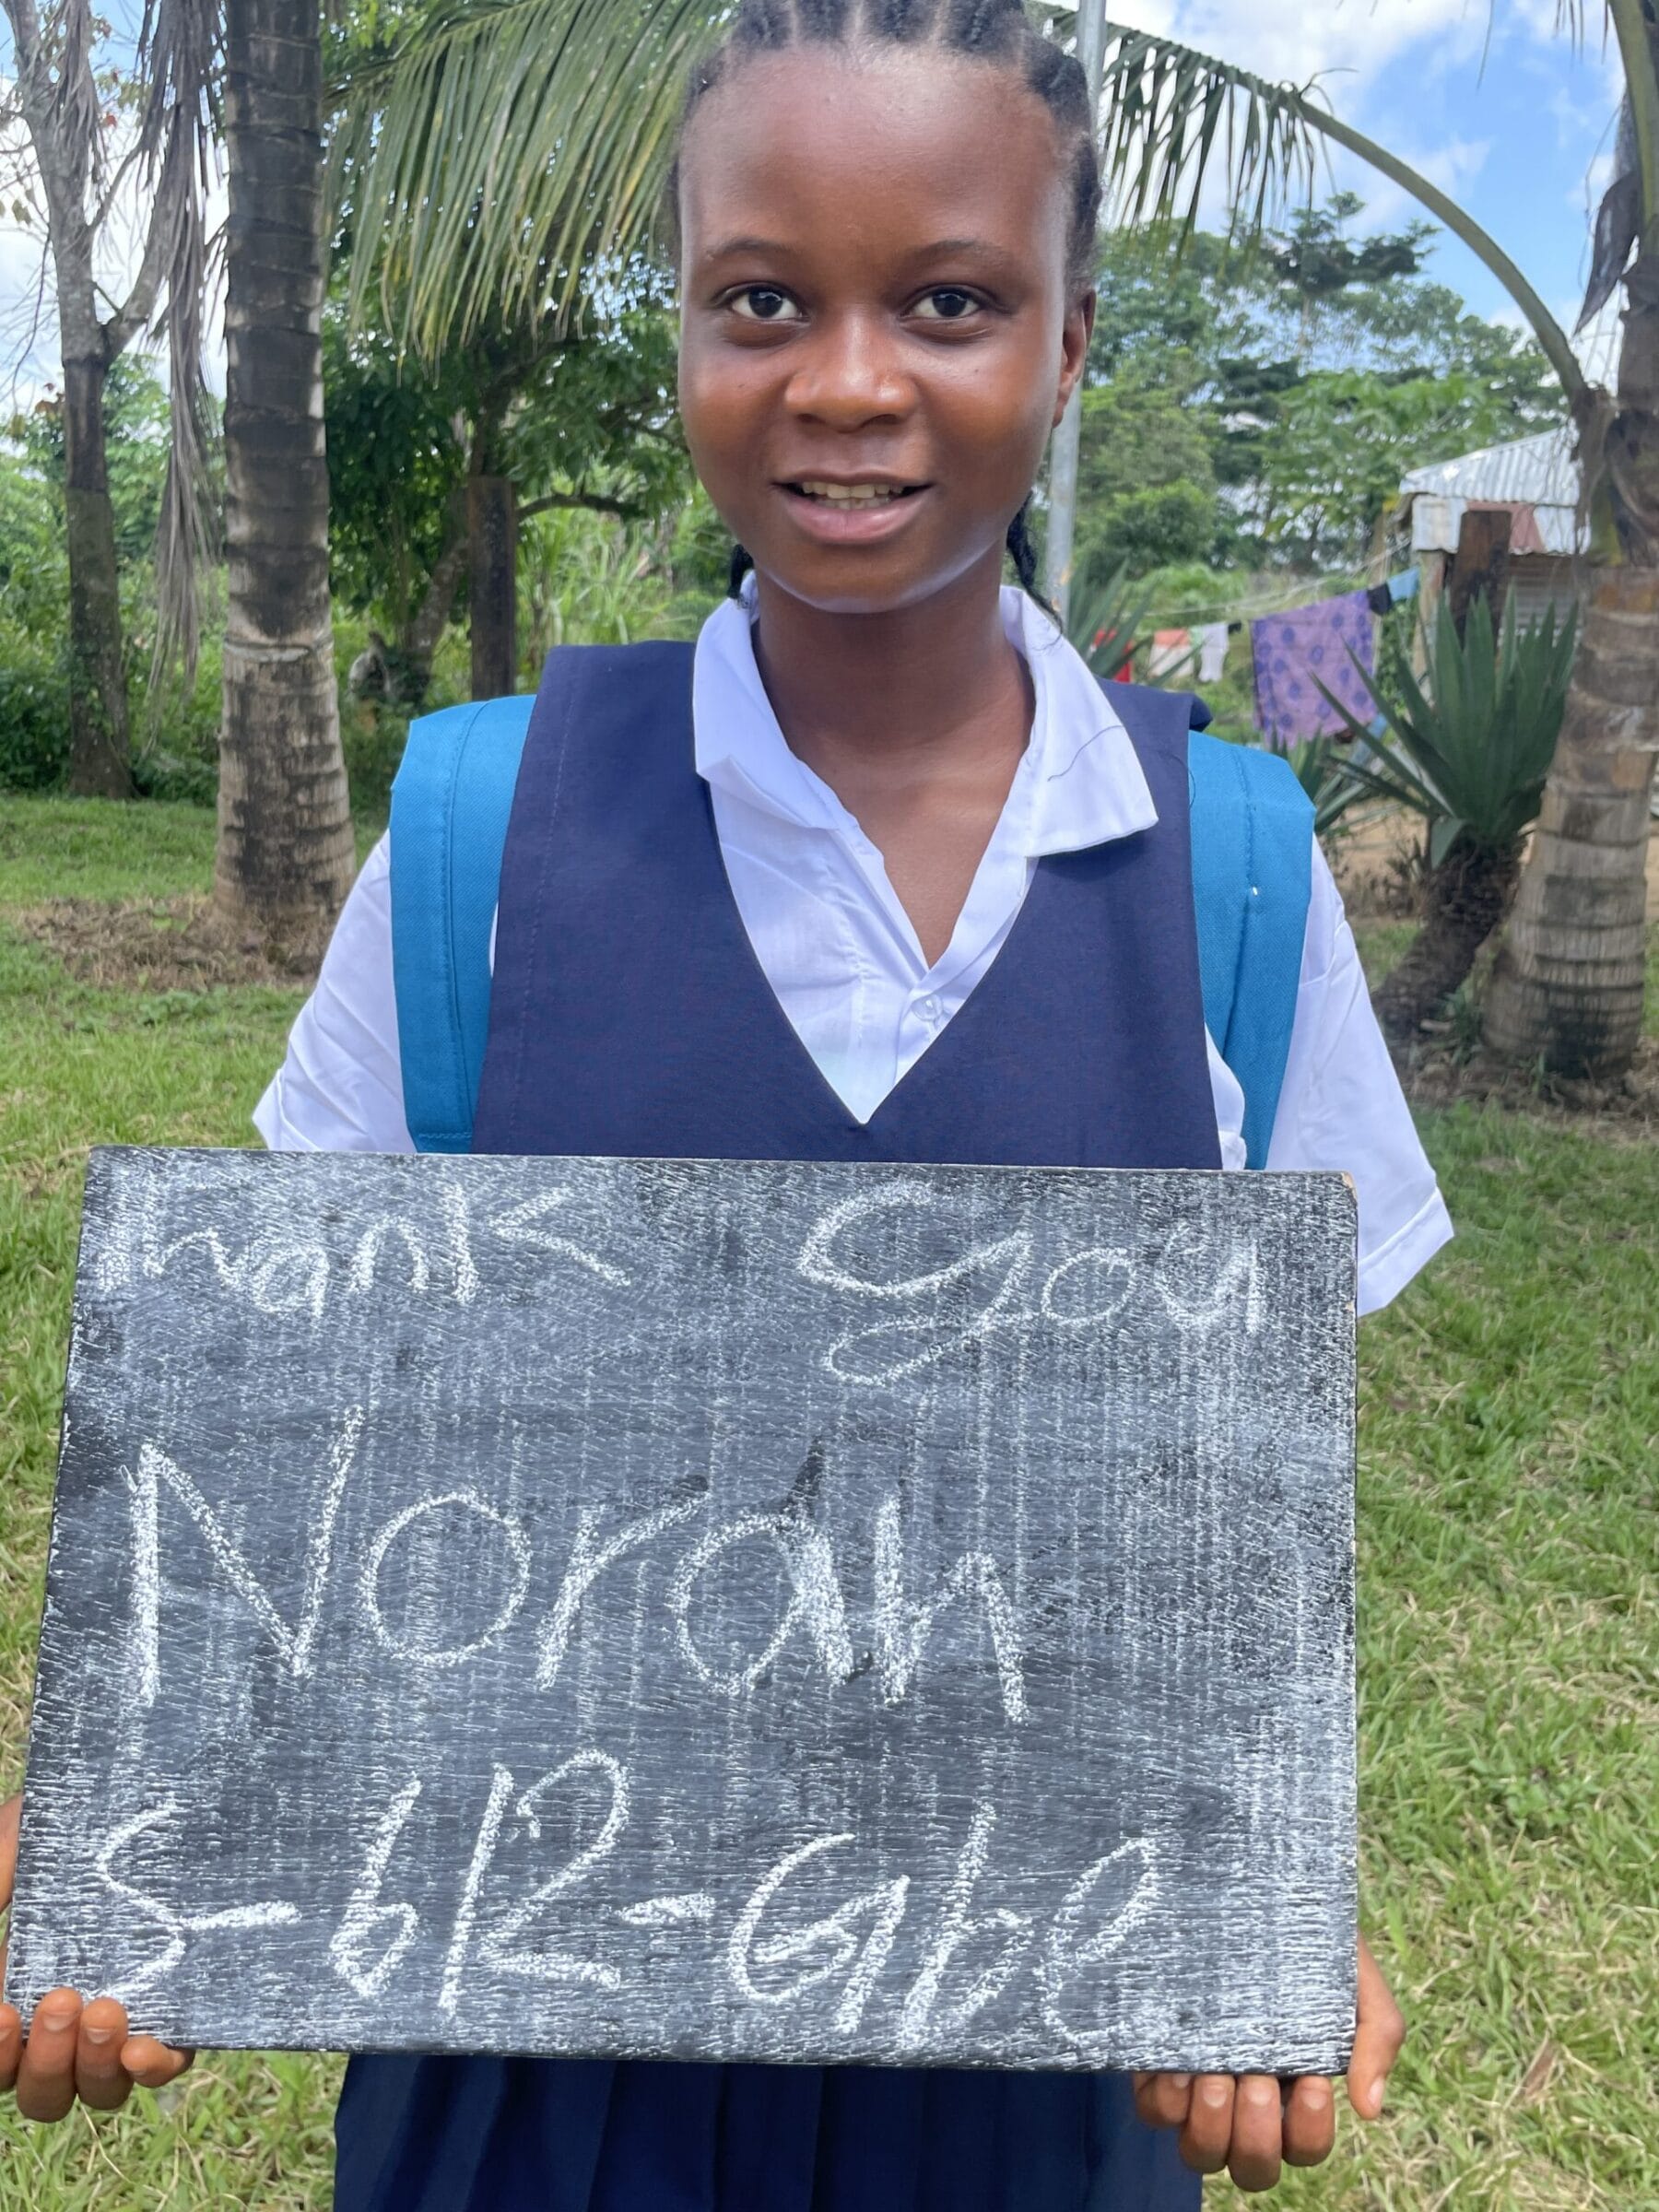 Thank you
Norah
S-b12-Gabe